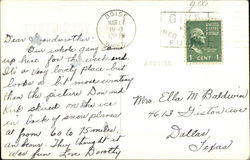 4.00
BOISE
MAR
GIVE
RED
FU
1 CENT 1
ADDRESS
Dear Grandmother:
Our whole gang came
up here for the week end.
It's a very lovely place but
looks a bit more wintry
than the picture. Don and
Kirk skied on the ice
in back of snow planes
at from 60 to 75 miles
an hour. They thought it
was fun. Love Dorothy
Mrs. Ella M. Baldwin
4613 Gaston Ave
Dallas,
Texas